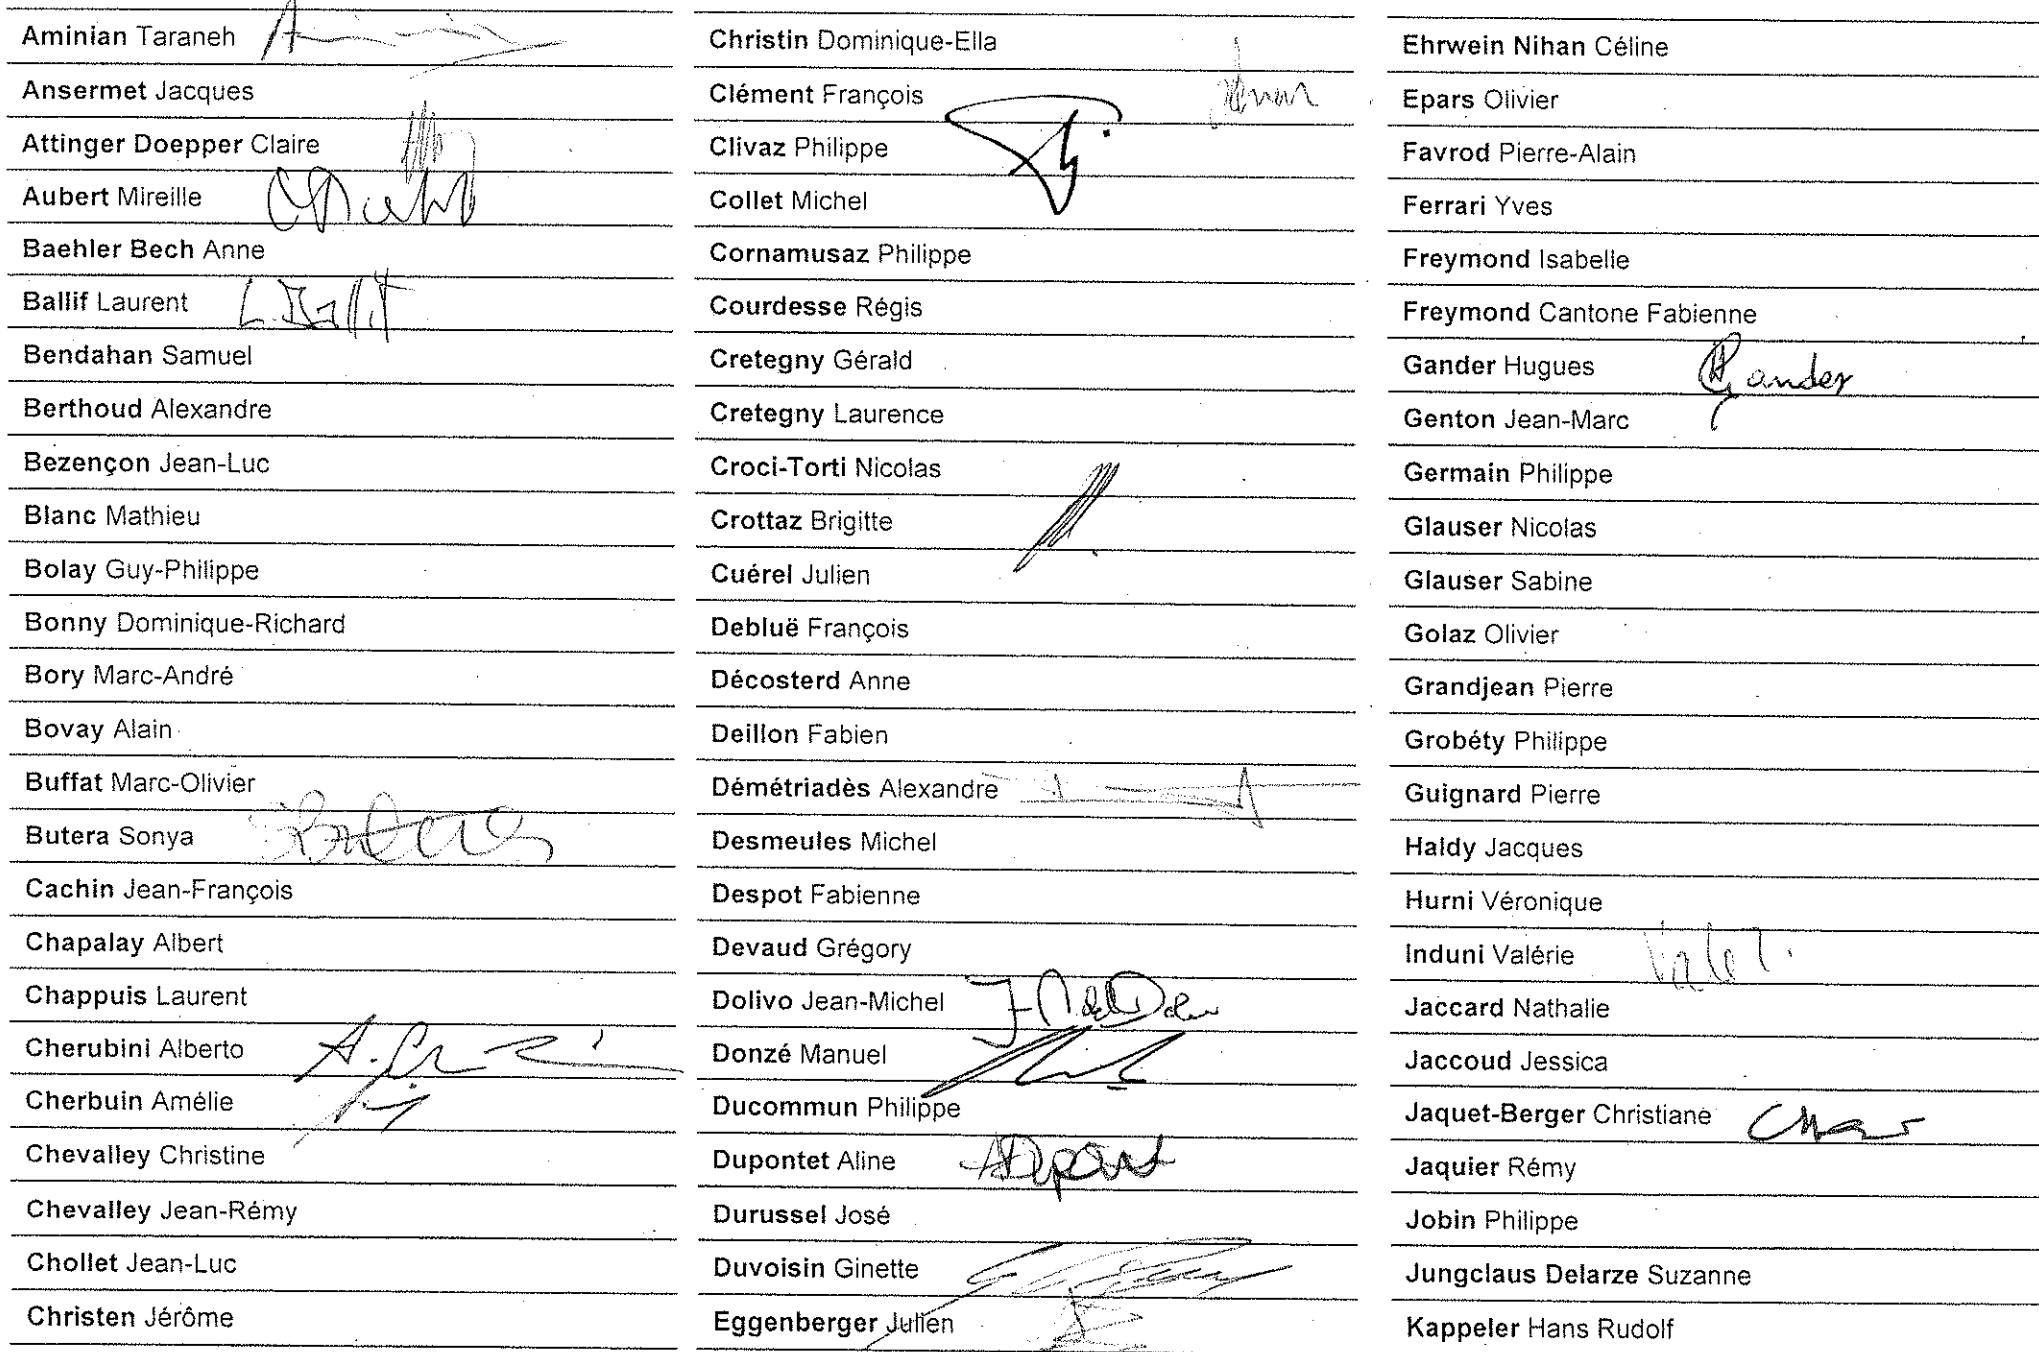 Aminian Taraneh
Ansermet Jacques
Attinger Doepper Claire
Aubert Mireille
Baehler Bech Anne
Ballif Laurent L. Ballif
Bendahan Samuel
Berthoud Alexandre
Bezençon Jean-Luc
Blanc Mathieu
Bolay Guy-Philippe
Bonny Dominique-Richard
Bory Marc-André
Bovay Alain
Buffat Marc-Olivier
Butera Sonya
Cachin Jean-François
Chapalay Albert
Chappuis Laurent
Cherubini Alberto
Cherbuin Amélie
Chevalley Christine
Chevalley Jean-Rémy
Chollet Jean-Luc
Christen Jérôme
Christin Dominique-Ella
Clément François
Clivaz Philippe
Collet Michel
Cornamusaz Philippe
Courdesse Régis
Cretegny Gérald
Cretegny Laurence
Croci-Torti Nicolas
Crottaz Brigitte
Cuérel Julien
Debluë François
Décosterd Anne
Deillon Fabien
Démétriadès Alexandre
Desmeules Michel
Despot Fabienne
Devaud Grégory
Dolivo Jean-Michel
Donzé Manuel
Ducommun Philippe
Dupontet Aline
Durussel José
Duvoisin Ginette
Eggenberger Julien
Ehrwein Nihan Céline
Epars Olivier
Favrod Pierre-Alain
Ferrari Yves
Freymond Isabelle
Freymond Cantone Fabienne
Gander Hugues Gander
Genton Jean-Marc
Germain Philippe
Glauser Nicolas
Glauser Sabine
Golaz Olivier
Grandjean Pierre
Grobéty Philippe
Guignard Pierre
Haldy Jacques
Hurni Véronique
Induni Valérie
Jaccard Nathalie
Jaccoud Jessica
Jaquet-Berger Christiane
Jaquier Rémy
Jobin Philippe
Jungclaus Delarze Suzanne
Kappeler Hans Rudolf